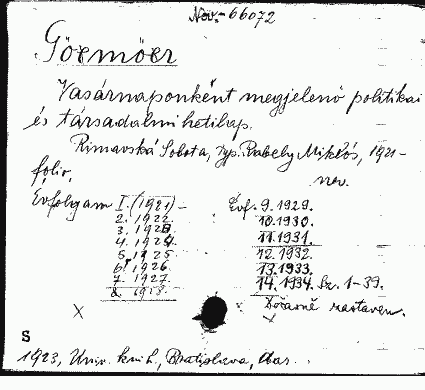 Nov.-66072
Gömör
Vasárnaponként megjelenő politikai
és társadalmi hetilap.
Rimavská Sobota, typ. Rábely Miklós, 1921-
folio, nov.
Évfolyam I. (1921)- Évf. 9. 1929.
2. 1922. 10. 1930.
3. 1923. 11. 1931.
4. 1924. 12. 1932.
5. 1925 13. 1933.
6. 1926. 14. 1934. Sz. 1-39.
7. 1927 Dočasně zastaven.
8. 1928.
X X
S
1923, Univ. knih., Bratislava,